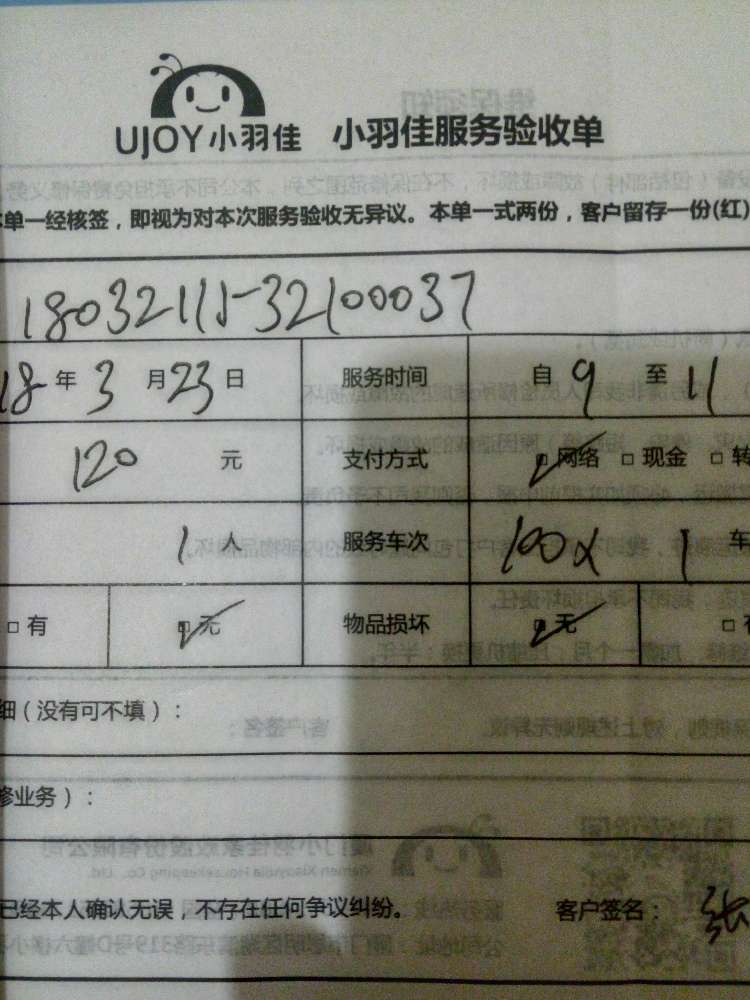 UJOY小羽佳 小羽佳服务验收单
本单一经核签，即视为对本次服务验收无异议。本单一式两份，客户留存一份(红)
18032115-32100037
18年3月23日 服务时间 自9至11
120元 支付方式 ☑网络 □现金 □转
1人 服务车次 1车
□有 ☑无 物品损坏 ☑无 □有
细（没有可不填）：
修业务）：
已经本人确认无误，不存在任何争议纠纷。 客户签名：张